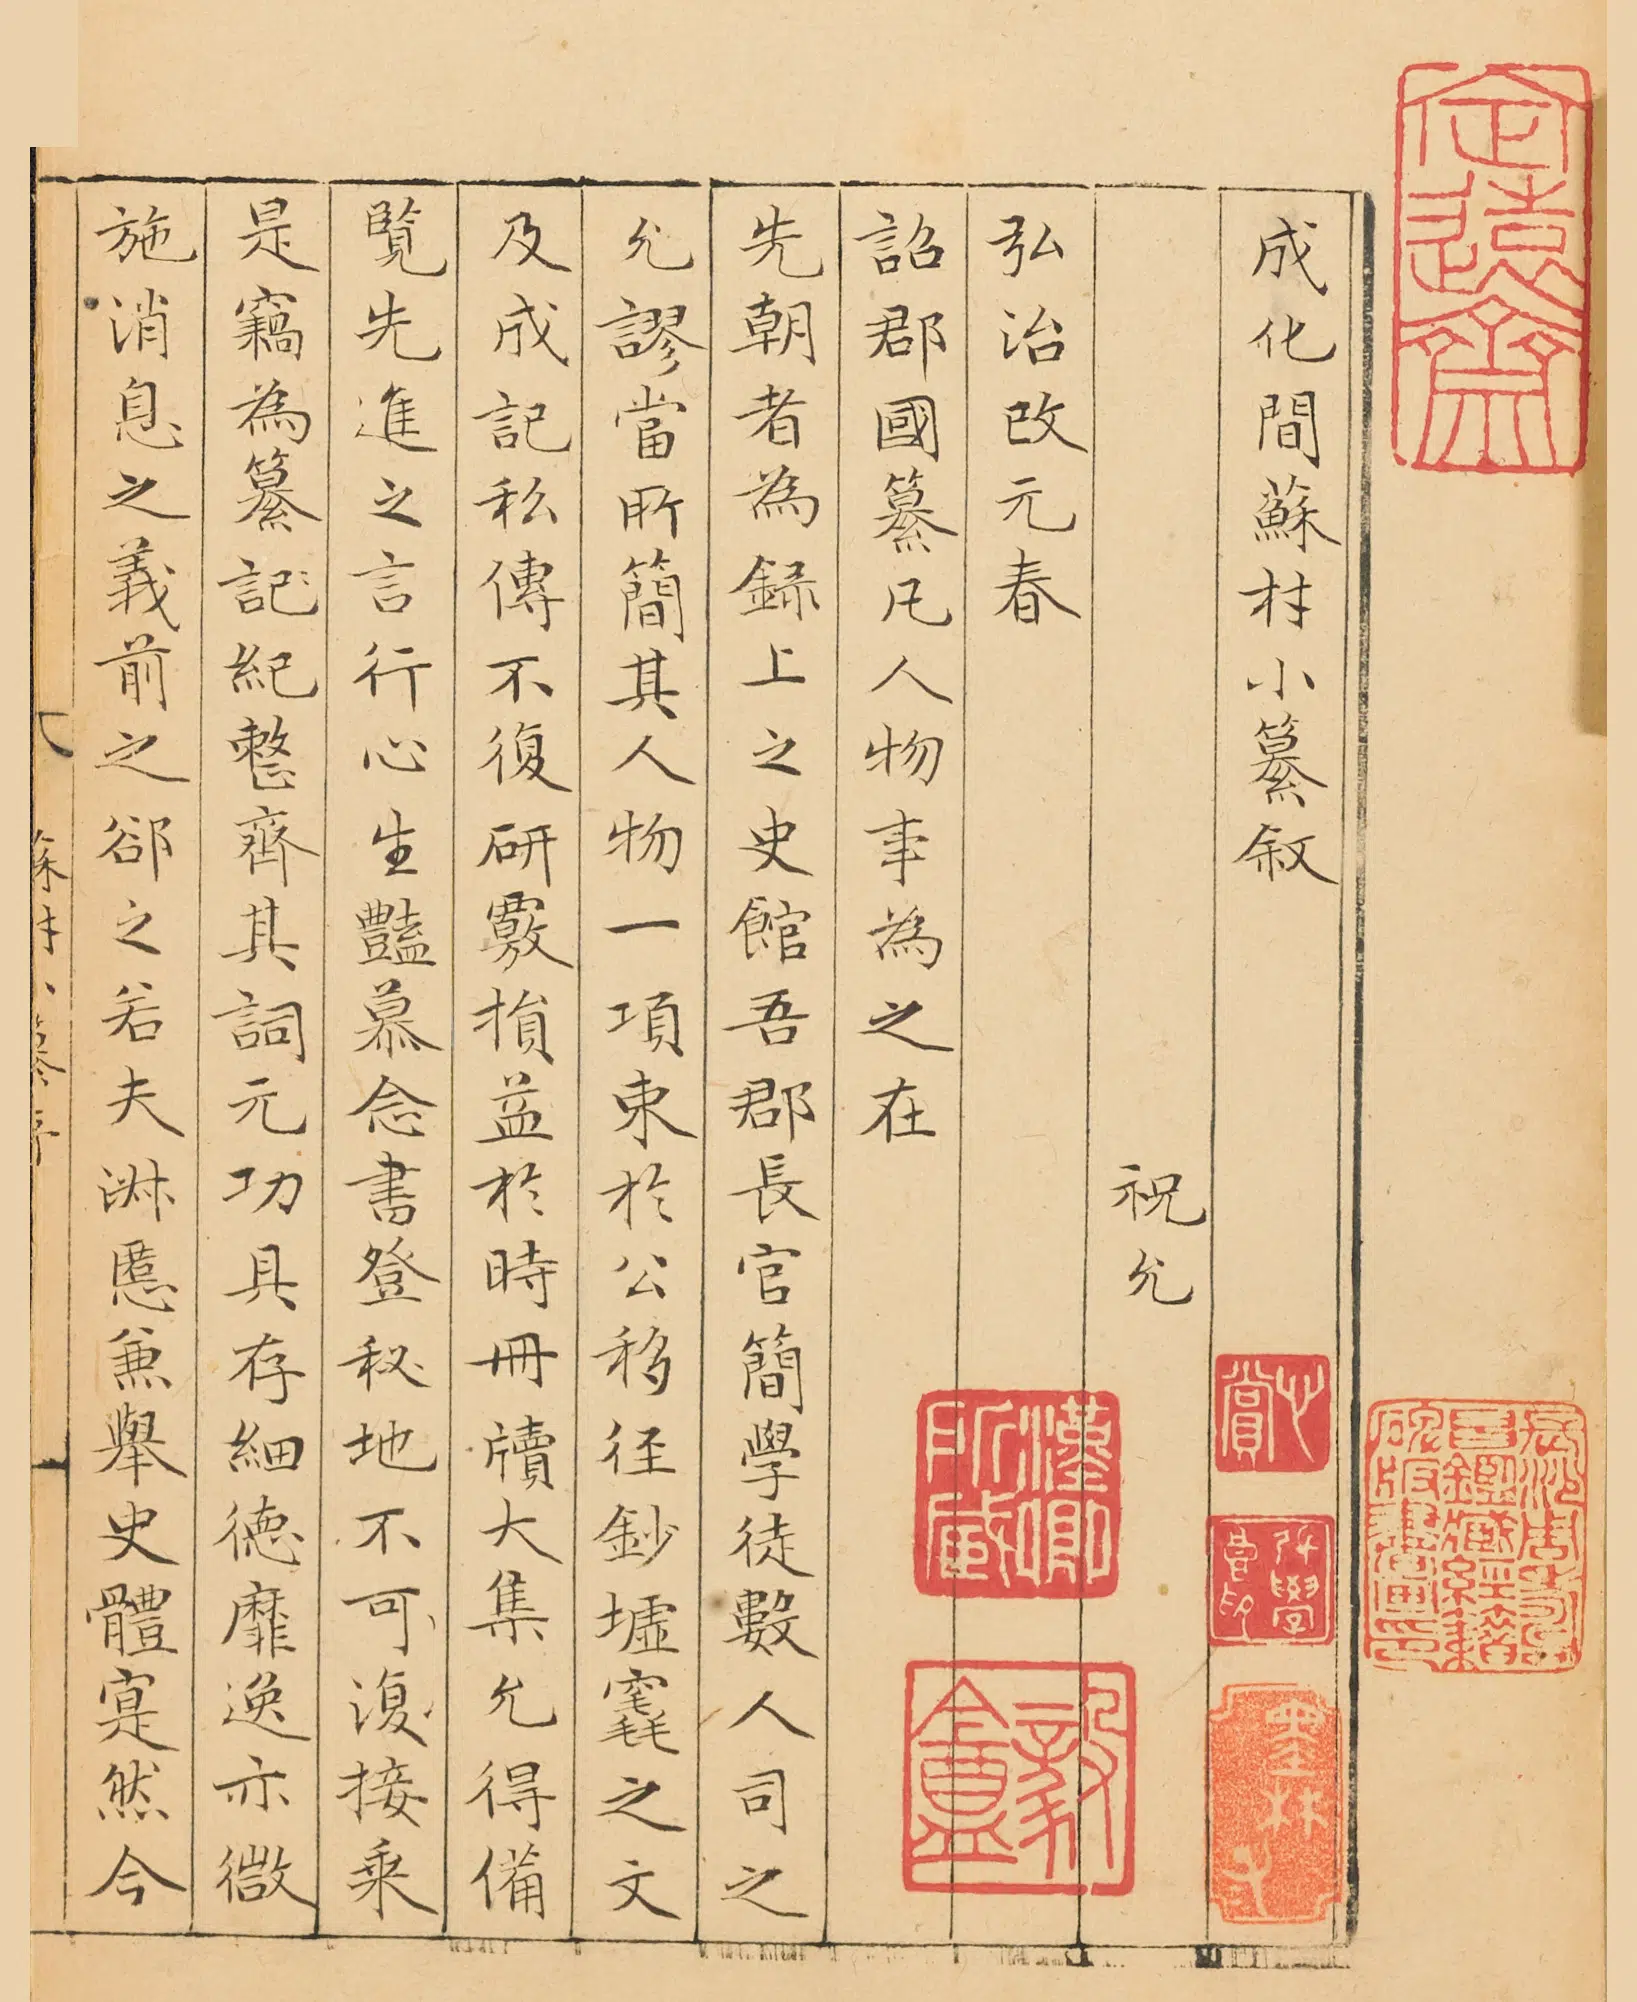 成化間蘇材小纂敘
祝允
弘治改元春
詔郡國纂凡人物事為之在
先朝者為錄上之史館吾郡長官簡學徒數人司之
允謬當所簡其人物一項東於公移徑鈔墟竁之文
及成記私傳不復研覈損益於時冊牘大集允得備
覽先進之言行心生豔慕念書登秘地不可復接乘
是竊為纂記紀整齊其詞元功具存細德靡逸亦微
施消息之義前之郤之若夫淋慝兼舉史體寔然今
心賞
漢卿所藏
墨林